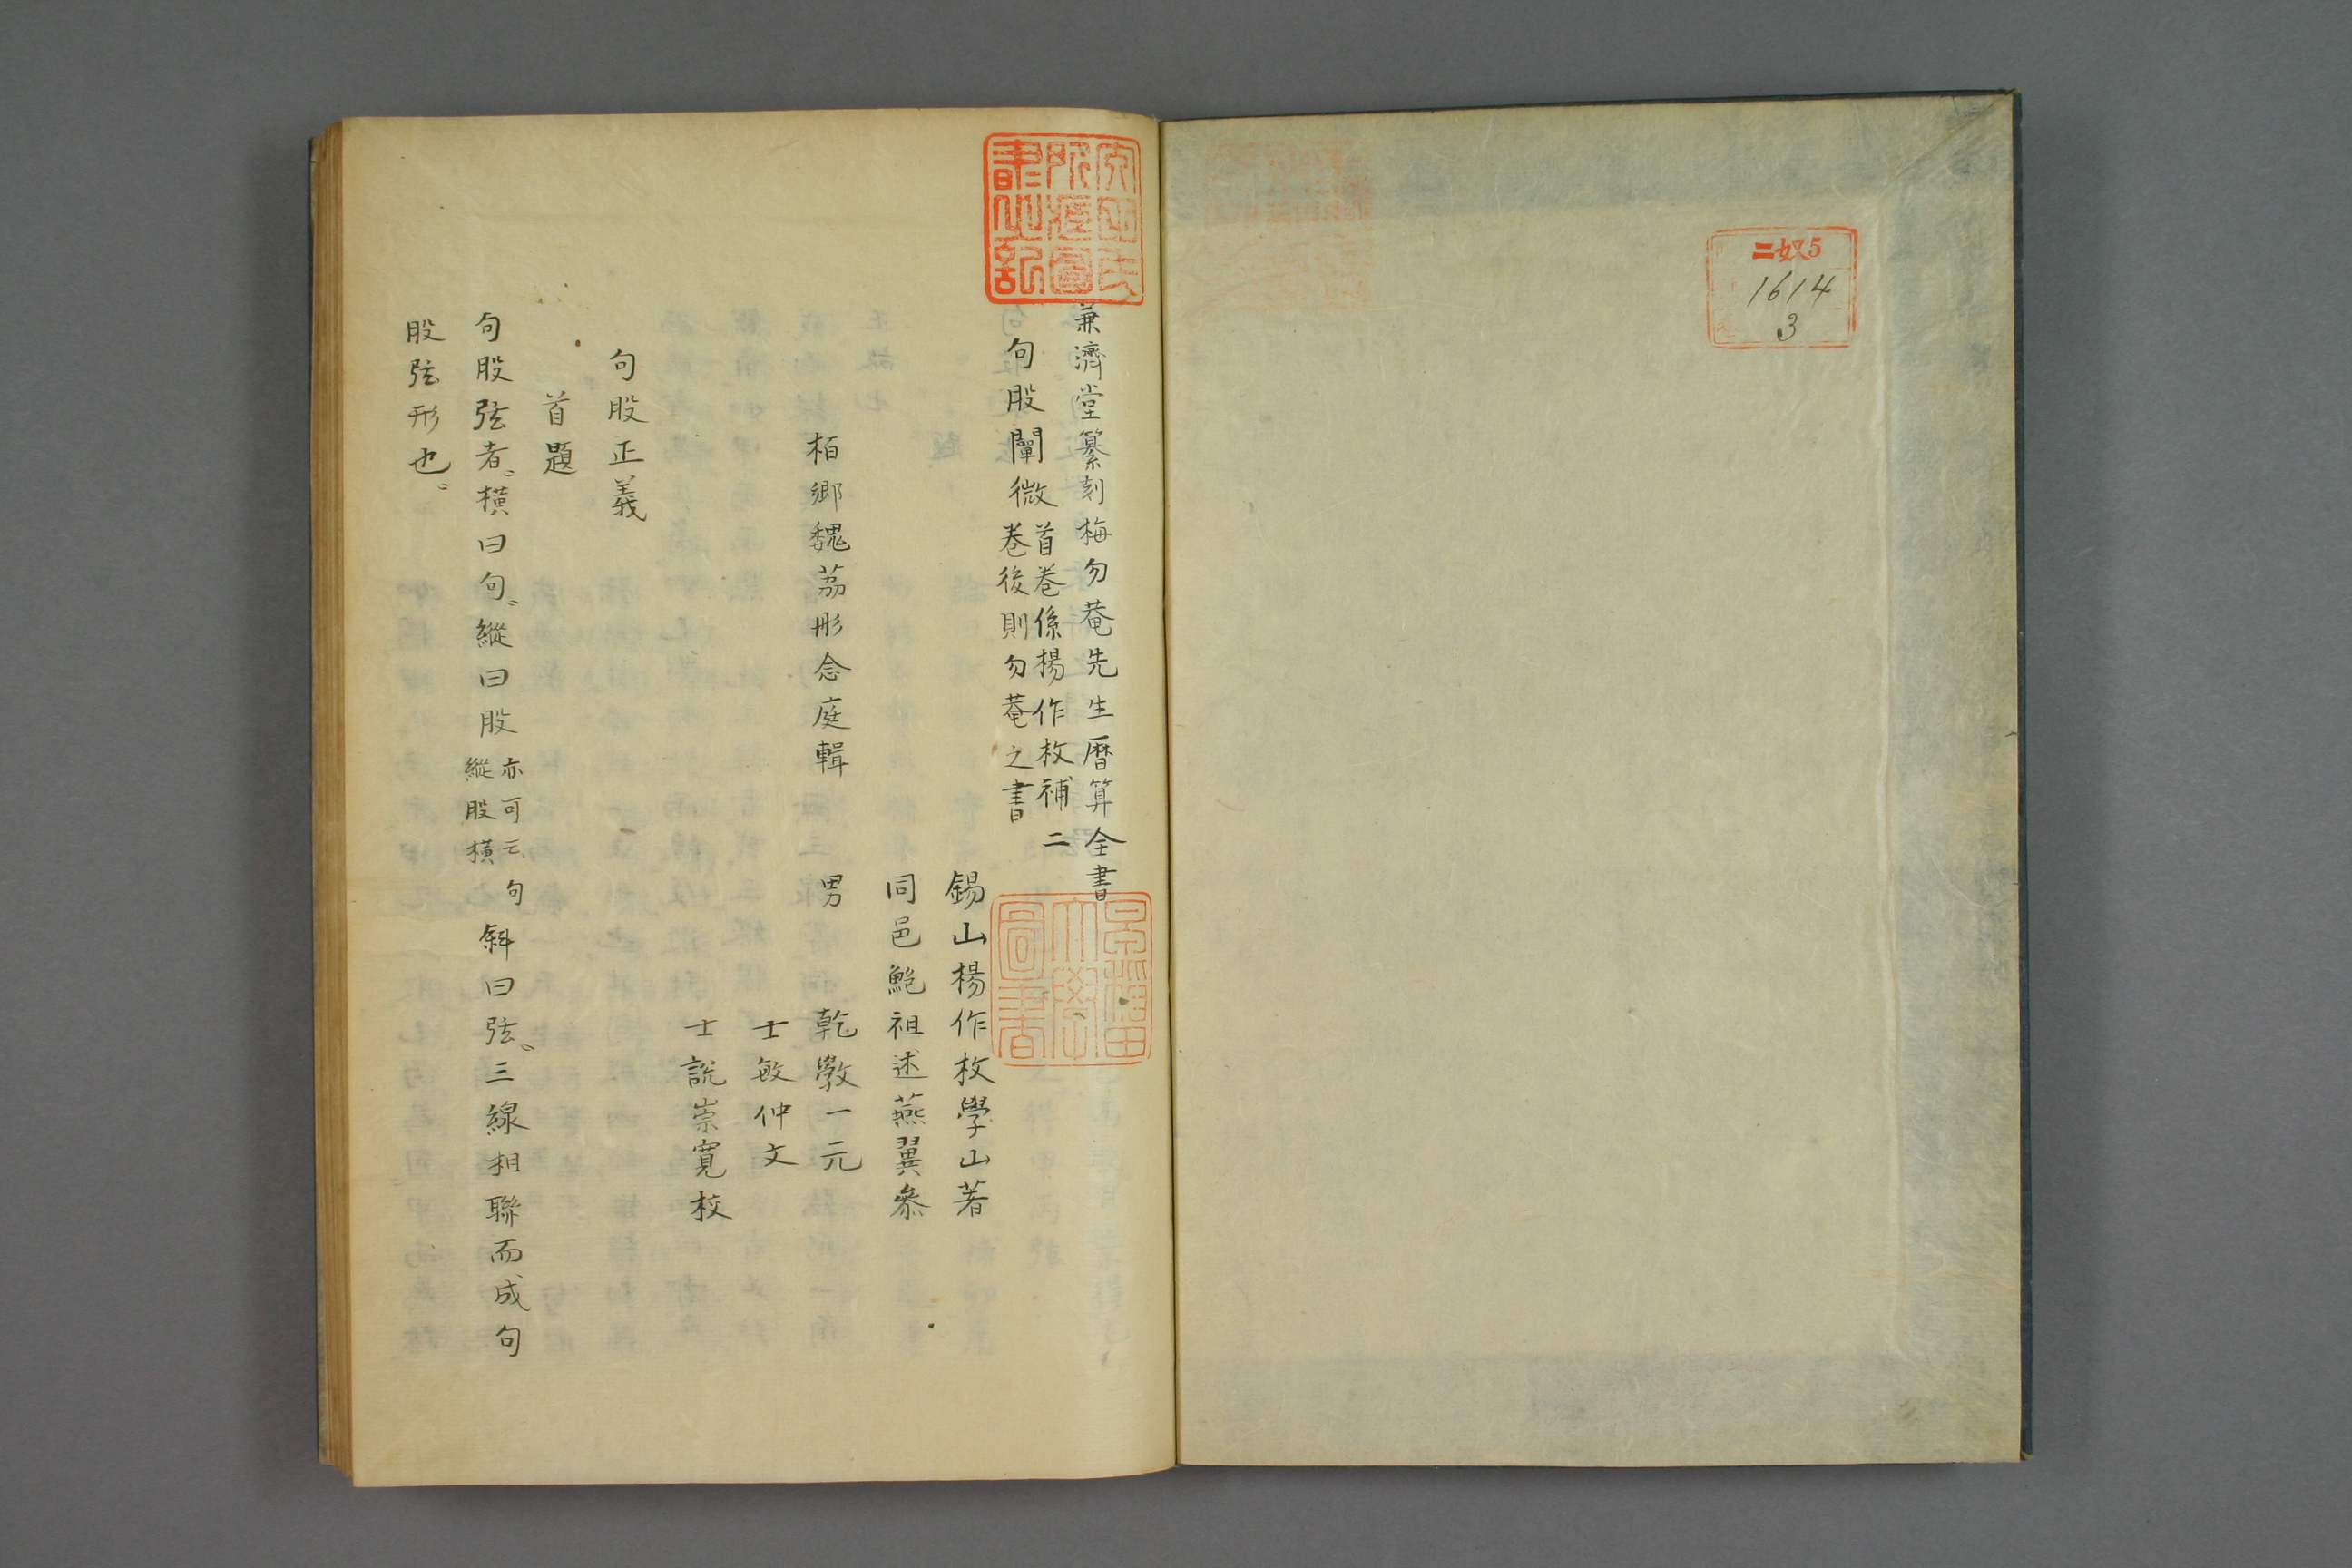 二奴5
1614
3
兼濟堂纂刻梅勿菴先生暦算全書
句股闡微首卷係揚作枚補二
卷後則勿菴之書
錫山楊作枚學山著
同邑鮑祖述燕翼叅
柏鄉魏荔彤念庭輯
男
乾斆一元
士敏仲文
士說崇寬校
句股正義
首題
句股弦者橫曰句縱曰股亦可云句
縱股橫
斜曰弦三線相聯而成句
股弦形也